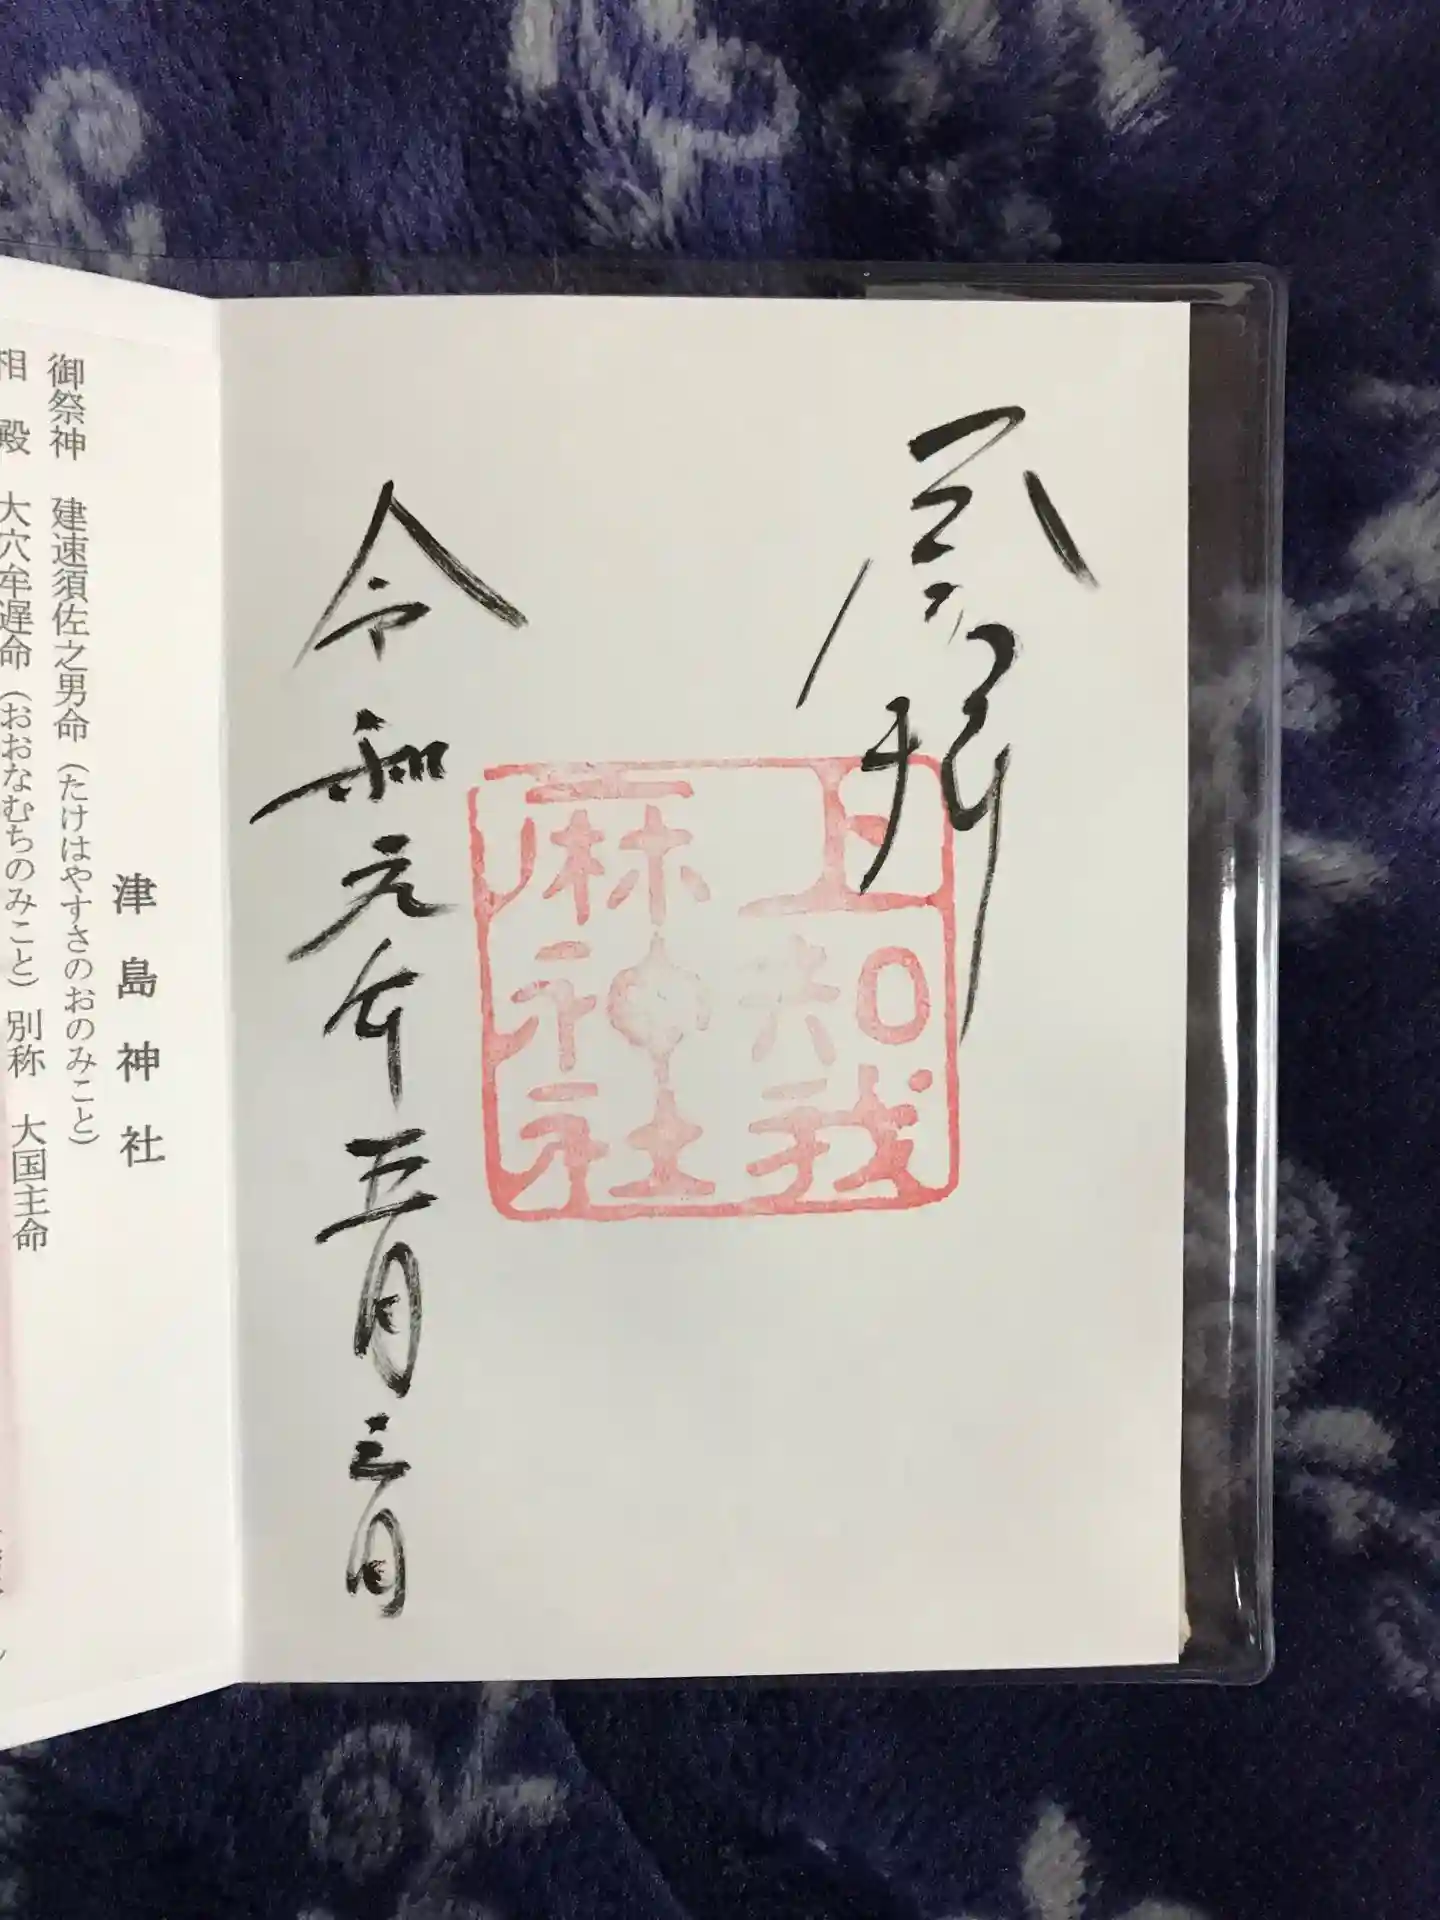 奉拝
上知我
麻神社
令和元年五月三日
津島神社
御祭神 建速須佐之男命（たけはやすさのおのみこと）
相殿 大穴牟遅命（おおなむちのみこと）別称 大国主命